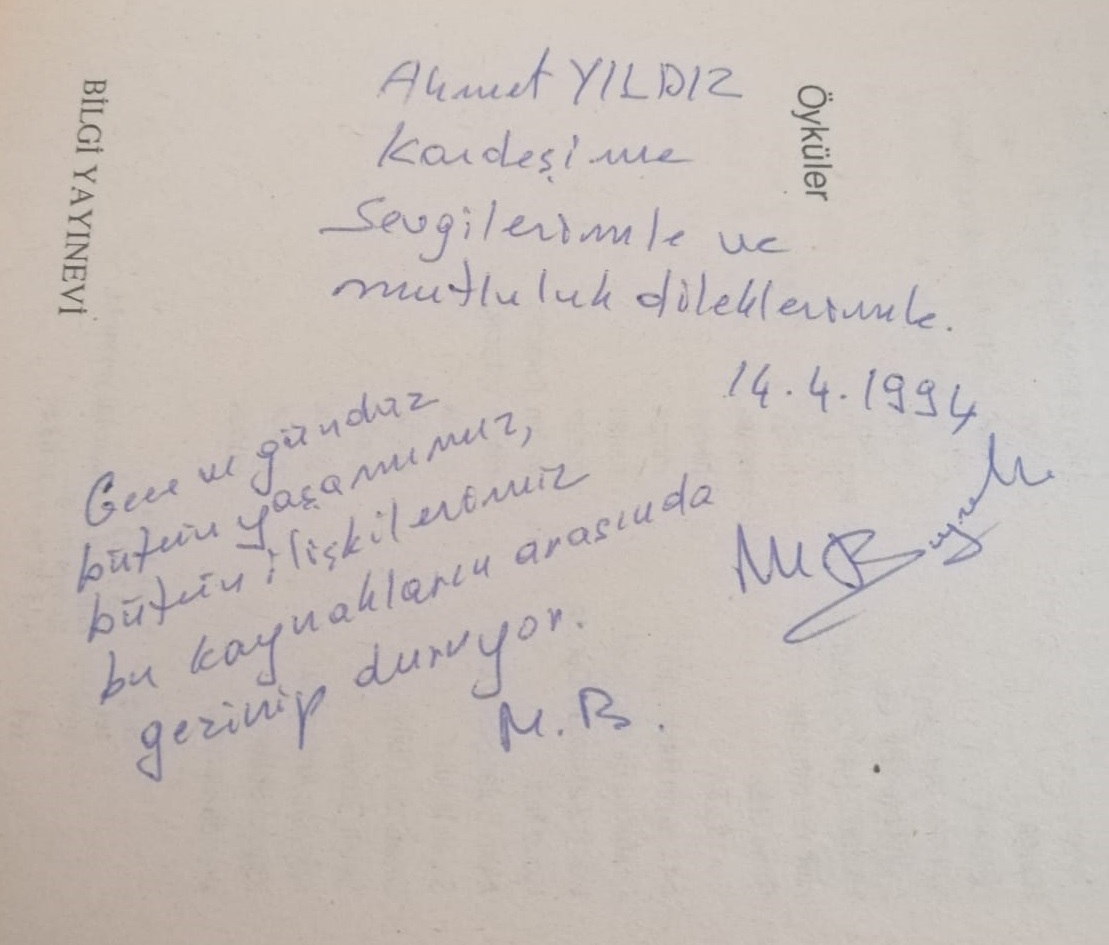 Ahmet YILDIZ
Kardeşime
Sevgilerimle ve
mutluluk dileklerimle.
14.4.1994
Gece ve gündüz
bütün yaşamımız,
bütün ilişkilerimiz
bu kaynakların arasında
gezinip duruyor.
M.B.
Öyküler
BİLGİ YAYINEVİ